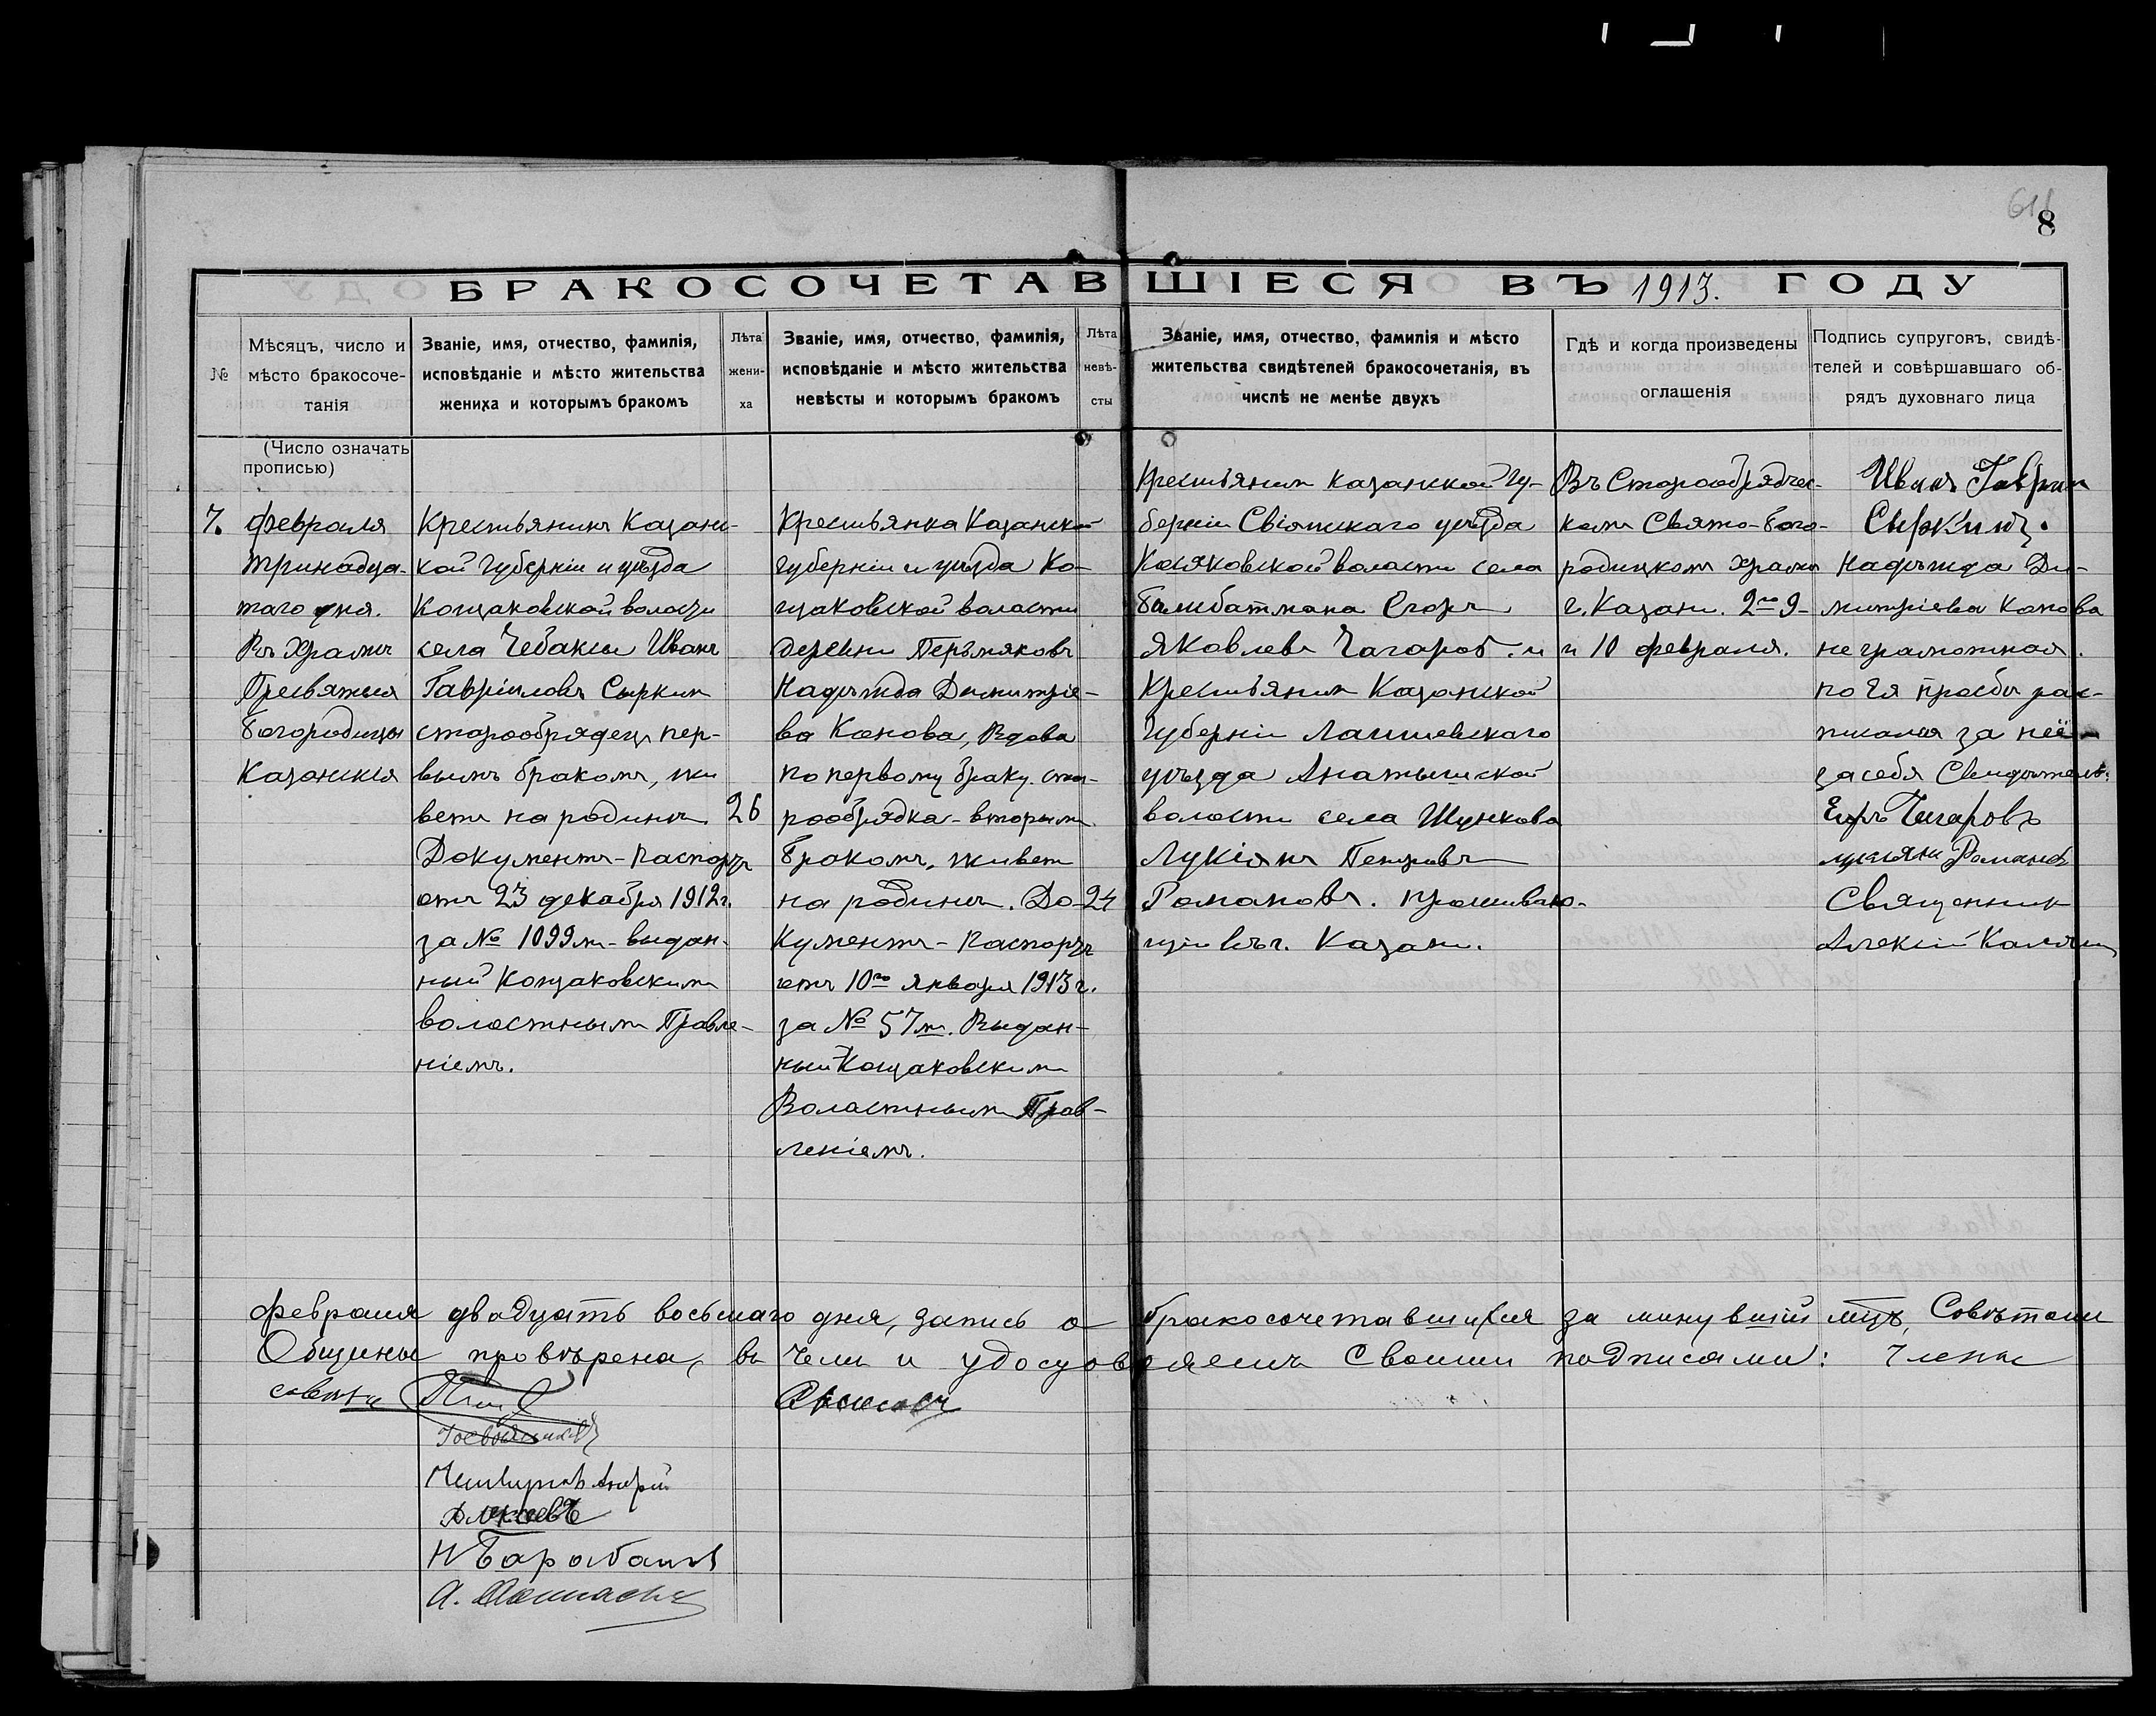 611
8
БРАКОСОЧЕТАВШІЕСЯ ВЪ 1913. ГОДУ
№
Мѣсяцъ, число и
мѣсто бракосоче-
танія
Званіе, имя, отчество, фамилія,
исповѣданіе и мѣсто жительства
жениха и которымъ бракомъ
Лѣта
жени-
ха
Званіе, имя, отчество, фамилія,
исповѣданіе и мѣсто жительства
невѣсты и которымъ бракомъ
Лѣта
невѣ-
сты
Званіе, имя, отчество, фамилія и мѣсто
жительства свидѣтелей бракосочетанія, въ
числѣ не менѣе двухъ
Гдѣ и когда произведены
оглашенія
Подпись супруговъ, свидѣ-
телей и совѣршавшаго об-
рядъ духовнаго лица
(Число означать
прописью)
7.
Февраля
тринадца-
таго дня.
Въ Храмѣ
Пресвятыя
Богородицы
Казанскія
Крестьянинъ Казанс-
кой Губерніи и уѣзда
Кощаковской волости
села Чебаксы Иванъ
Гавріиловъ Сыркин
старообрядецъ пер-
вымъ бракомъ, жи
ветъ на родинѣ.
Документъ-Паспортъ
отъ 23 декабря 1912 г.
за № 1099 м- выдан-
ный Кощаковскимъ
волостнымъ Правле-
ніемъ.
26
Крестьянка Казанской
губерніи и уѣзда Ко-
щаковской волости
деревни Пермяковъ
Надѣжда Димитріе-
ва Конова, Вдова
по первому браку. ста-
рообрядка-вторымъ
бракомъ, живетъ
на родинѣ. До-
кументъ-Паспортъ
отъ 10го января 1913 г.
за № 57 м. Выдан-
ный Кощаковскимъ
Волостнымъ Прав-
леніемъ.
24
Крестьянинъ Казанской Гу-
берніи Свіяжскаго уѣзда
волости села
Егоръ
Яковлевъ Чагаров. и
Крестьянинъ Казанской
Губерніи Лаишевскаго
уѣзда Анатышской
волости села Шункова
Лукіянъ Петровъ
Романовъ. проживаю-
щіи въ г. Казани.
Въ Старообрядчес-
комъ Свято-Бого-
родицкомъ Храмѣ
г. Казани. 2го 9-
и 10 февраля.
Иванъ
Сыркинъ.
Надѣжда Ди-
митріева Конова
неграмотная.
по Ея прозьбы рас-
писался за неё
за себя Свидѣтель:
Егоръ Чегаровъ
Романовъ
Священник
Алексій
Февраля двадцать восьмаго дня, запись о бракосочетавшихся за минувшій мцъ, Совѣтомъ
Общины провѣрена, въ чемъ и удостовѣряемъ Своими подписями: Члены
совѣта
Андрей
Алексеевъ
Н Барабанов